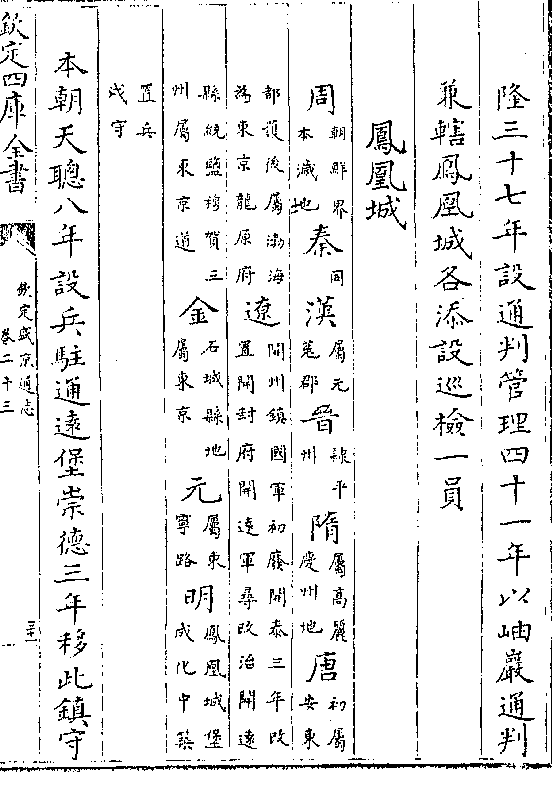 隆三十七年設通判管理四十一年以岫巖通判
兼轄鳳凰城各添設巡檢一員
鳳凰城
周朝鮮界本濊地秦同漢屬元菟郡晉隸平州隋屬高麗慶州地唐初屬安東
都護後屬渤海為東京龍原府遼開州鎮國軍初廢開泰三年改置開封府開遠軍尋改治開遠
縣統鹽穆賀三州屬東京道金石城縣地屬東京元屬東寧路明鳳凰城堡成化中築
置兵戍守
本朝天聰八年設兵駐通遠堡崇德三年移此鎮守
欽定四庫全書
欽定盛京通志
卷二十三